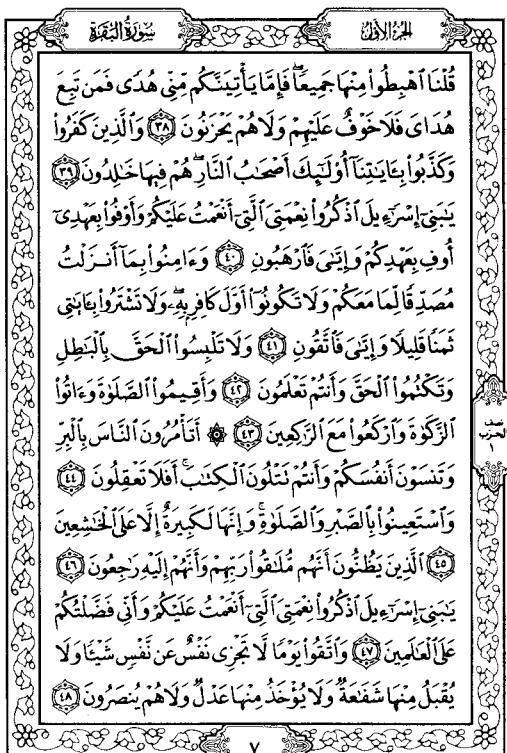 سورة البقرة
الجزء الأول
قُلْنَا ٱهْبِطُوا۟ مِنْهَا جَمِيعًۭا ۖ فَإِمَّا يَأْتِيَنَّكُم مِّنِّى هُدًۭى فَمَن تَبِعَ
هُدَاىَ فَلَا خَوْفٌ عَلَيْهِمْ وَلَا هُمْ يَحْزَنُونَ ٣٨ وَٱلَّذِينَ كَفَرُوا۟
وَكَذَّبُوا۟ بِـَٔايَـٰتِنَآ أُو۟لَـٰٓئِكَ أَصْحَـٰبُ ٱلنَّارِ ۖ هُمْ فِيهَا خَـٰلِدُونَ ٣٩
يَـٰبَنِىٓ إِسْرَٰٓءِيلَ ٱذْكُرُوا۟ نِعْمَتِىَ ٱلَّتِىٓ أَنْعَمْتُ عَلَيْكُمْ وَأَوْفُوا۟ بِعَهْدِىٓ
أُوفِ بِعَهْدِكُمْ وَإِيَّـٰىَ فَٱرْهَبُونِ ٤٠ وَءَامِنُوا۟ بِمَآ أَنزَلْتُ
مُصَدِّقًۭا لِّمَا مَعَكُمْ وَلَا تَكُونُوٓا۟ أَوَّلَ كَافِرٍۭ بِهِۦ ۖ وَلَا تَشْتَرُوا۟ بِـَٔايَـٰتِى
ثَمَنًۭا قَلِيلًۭا وَإِيَّـٰىَ فَٱتَّقُونِ ٤١ وَلَا تَلْبِسُوا۟ ٱلْحَقَّ بِٱلْبَـٰطِلِ
وَتَكْتُمُوا۟ ٱلْحَقَّ وَأَنتُمْ تَعْلَمُونَ ٤٢ وَأَقِيمُوا۟ ٱلصَّلَوٰةَ وَءَاتُوا۟
ٱلزَّكَوٰةَ وَٱرْكَعُوا۟ مَعَ ٱلرَّٰكِعِينَ ٤٣ ۞ أَتَأْمُرُونَ ٱلنَّاسَ بِٱلْبِرِّ
وَتَنسَوْنَ أَنفُسَكُمْ وَأَنتُمْ تَتْلُونَ ٱلْكِتَـٰبَ ۚ أَفَلَا تَعْقِلُونَ ٤٤
وَٱسْتَعِينُوا۟ بِٱلصَّبْرِ وَٱلصَّلَوٰةِ ۚ وَإِنَّهَا لَكَبِيرَةٌ إِلَّا عَلَى ٱلْخَـٰشِعِينَ
٤٥ ٱلَّذِينَ يَظُنُّونَ أَنَّهُم مُّلَـٰقُوا۟ رَبِّهِمْ وَأَنَّهُمْ إِلَيْهِ رَٰجِعُونَ ٤٦
يَـٰبَنِىٓ إِسْرَٰٓءِيلَ ٱذْكُرُوا۟ نِعْمَتِىَ ٱلَّتِىٓ أَنْعَمْتُ عَلَيْكُمْ وَأَنِّى فَضَّلْتُكُمْ
عَلَى ٱلْعَـٰلَمِينَ ٤٧ وَٱتَّقُوا۟ يَوْمًۭا لَّا تَجْزِى نَفْسٌ عَن نَّفْسٍۢ شَيْـًۭٔا وَلَا
يُقْبَلُ مِنْهَا شَفَـٰعَةٌۭ وَلَا يُؤْخَذُ مِنْهَا عَدْلٌۭ وَلَا هُمْ يُنصَرُونَ ٤٨
نصف
الحزب
١
٧